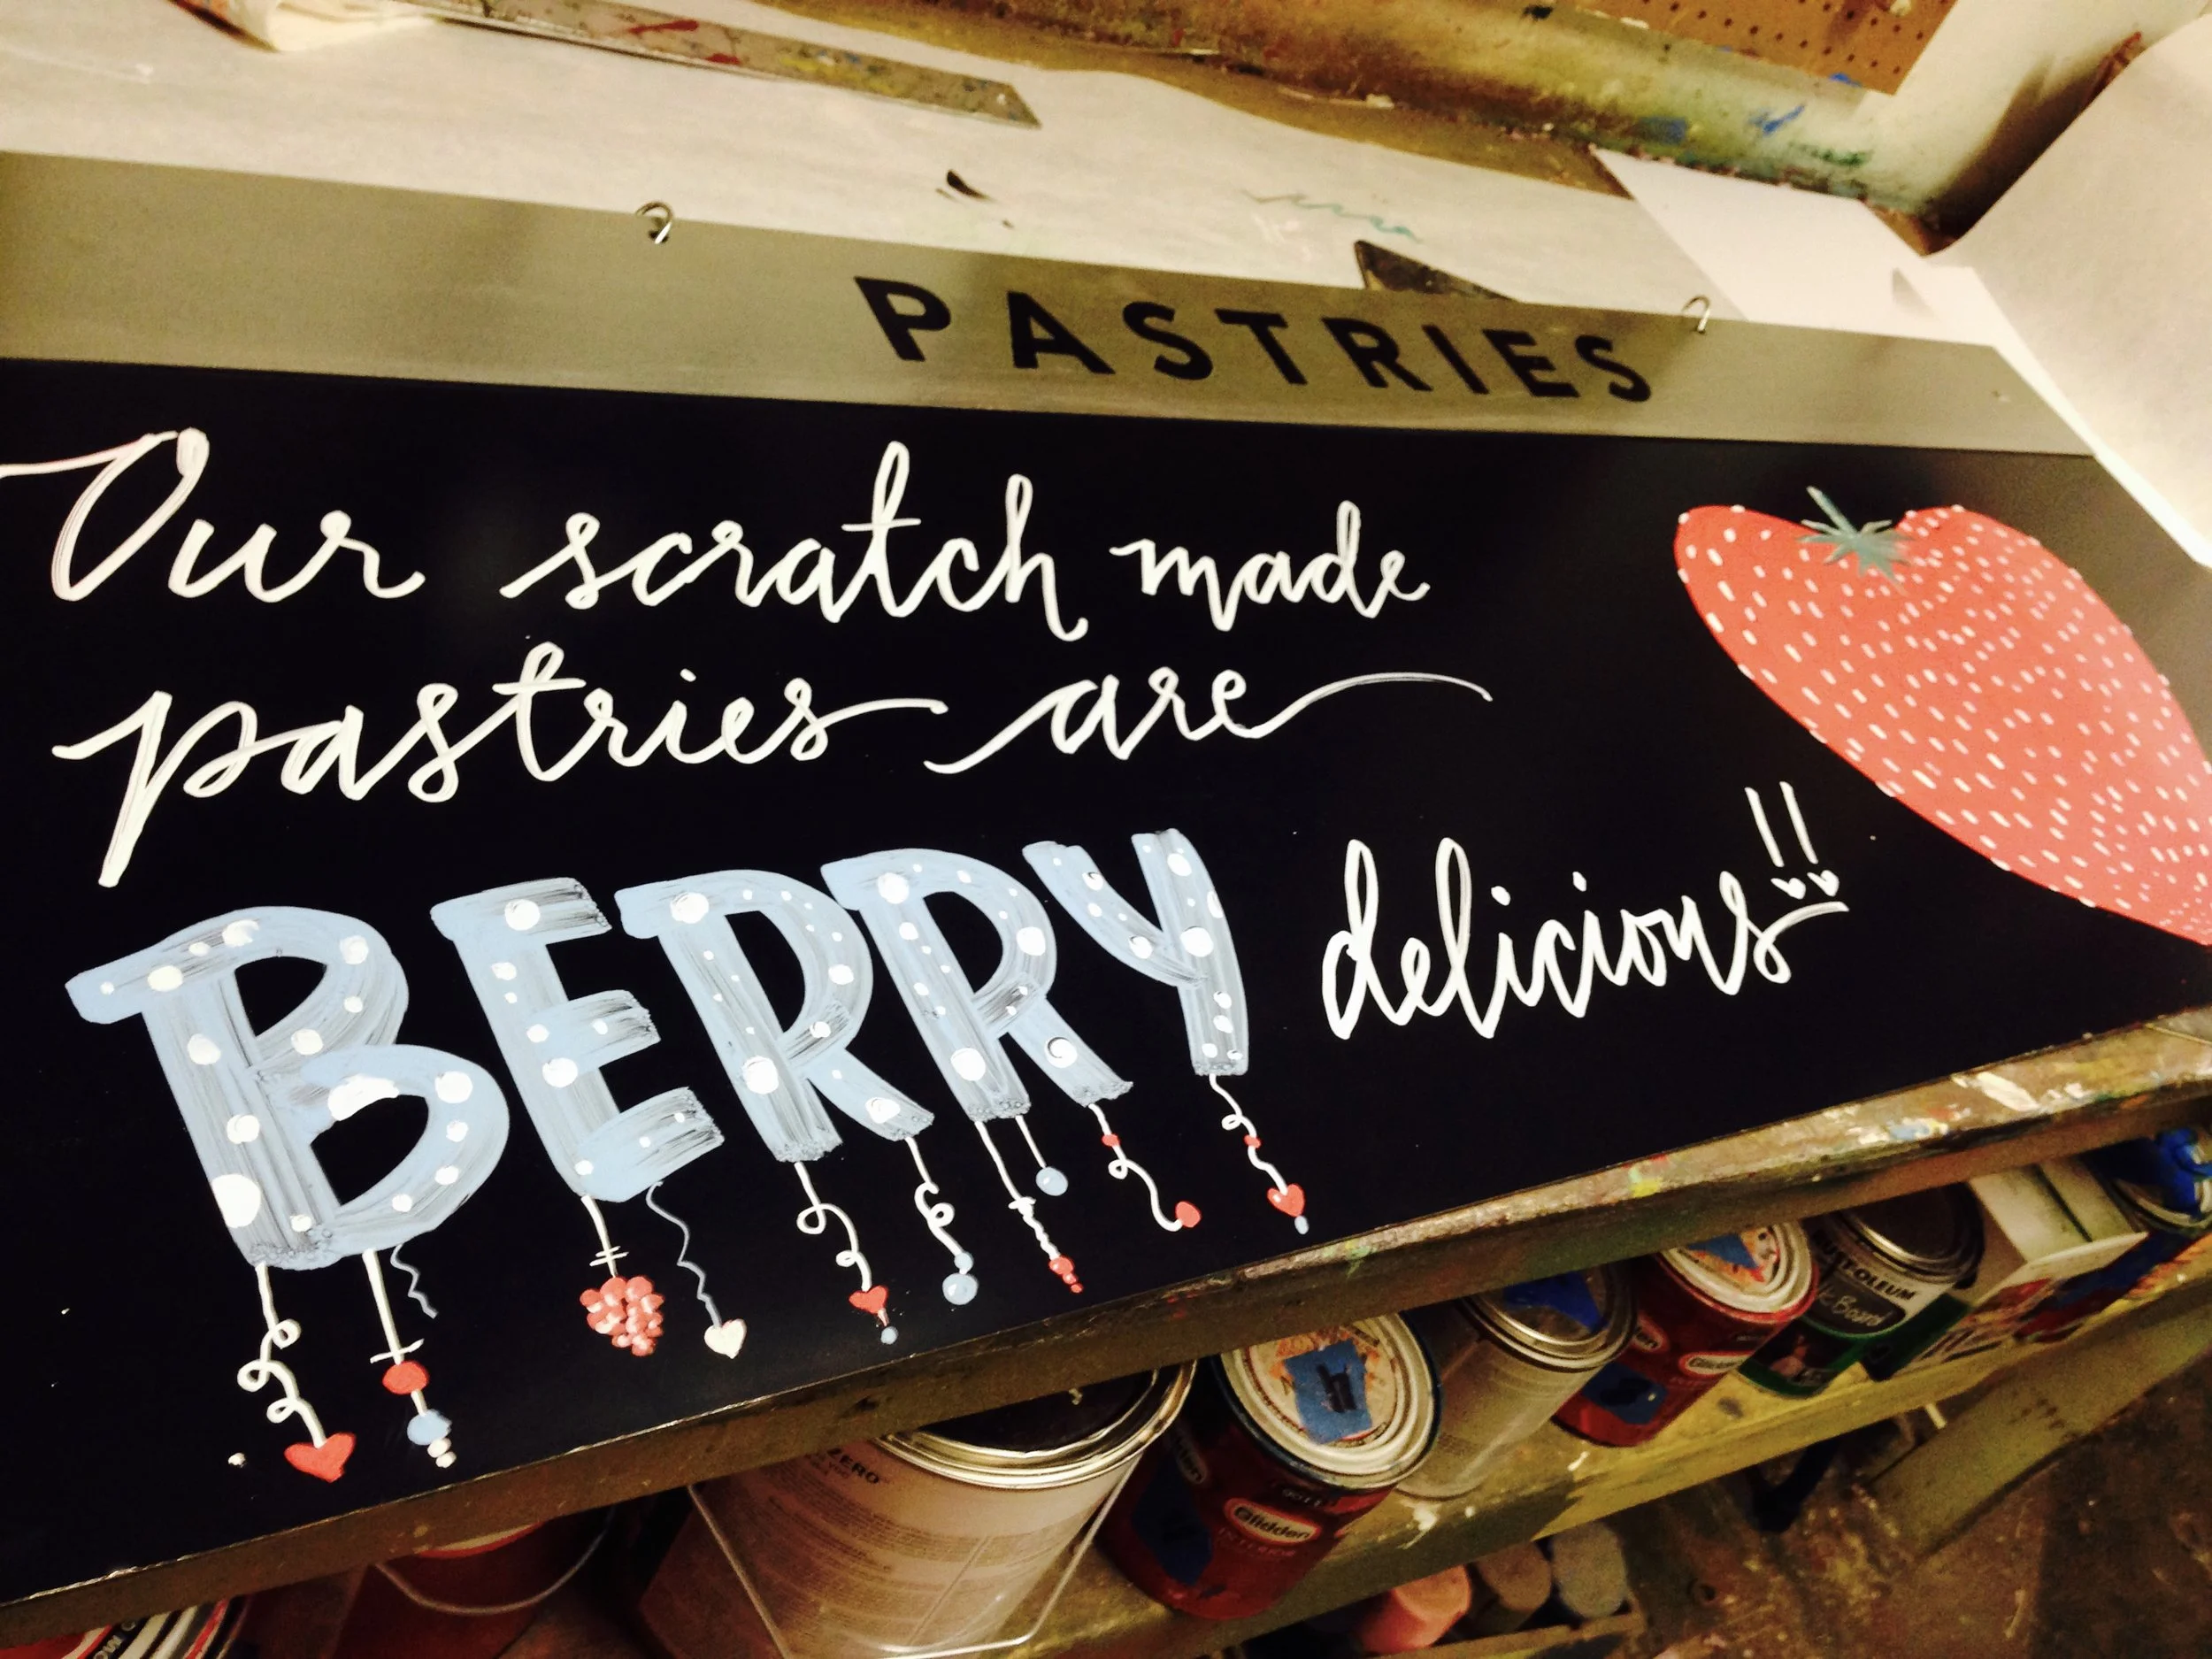 PASTRIES
Our scratch made
pastries are
BERRY delicious!!
ZERO
Glidden
Glidden
RUST-OLEUM